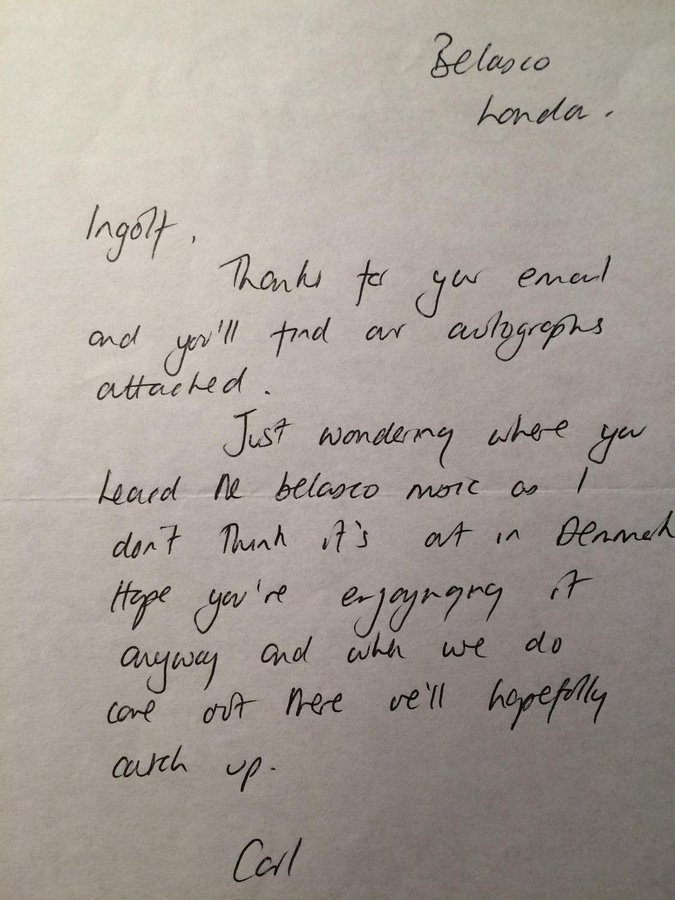 Belasco
London.
Ingolf,
Thanks for your email
and you'll find our autographs
attached.
Just wondering where you
heard the belasco music as I
don't think it's out in Denmark
Hope you're enjoying it
anyway and when we do
come out there we'll hopefully
catch up.
Carl